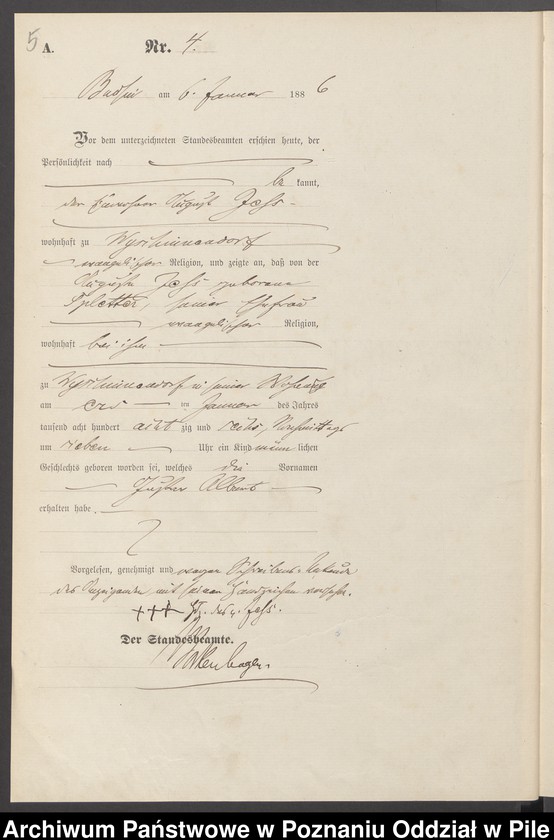 5
A.
Nr. 4.
am 6. Januar 1886
Vor dem unterzeichneten Standesbeamten erschien heute, der
Persönlichkeit nach
be kannt,
der August Jess
wohnhaft zu
evangelischer Religion, und zeigte an, daß von der
Auguste Jess geborene
Spletter, seiner Ehefrau
evangelischer Religion,
wohnhaft bei ihm
zu in seiner Wohnung
am ten Januar des Jahres
tausend acht hundert acht zig und sechs, Vormittags
um sieben Uhr ein Kind männ lichen
Geschlechts geboren worden sei, welches die Vornamen
Albert
erhalten habe.
Vorgelesen, genehmigt und wegen Schreibens-Unkunde
des Anzeigenden mit seinem Handzeichen versehen.
+++ Hz. des A. Jess.
Der Standesbeamte.
Archiwum Państwowe w Poznaniu Oddział w Pile